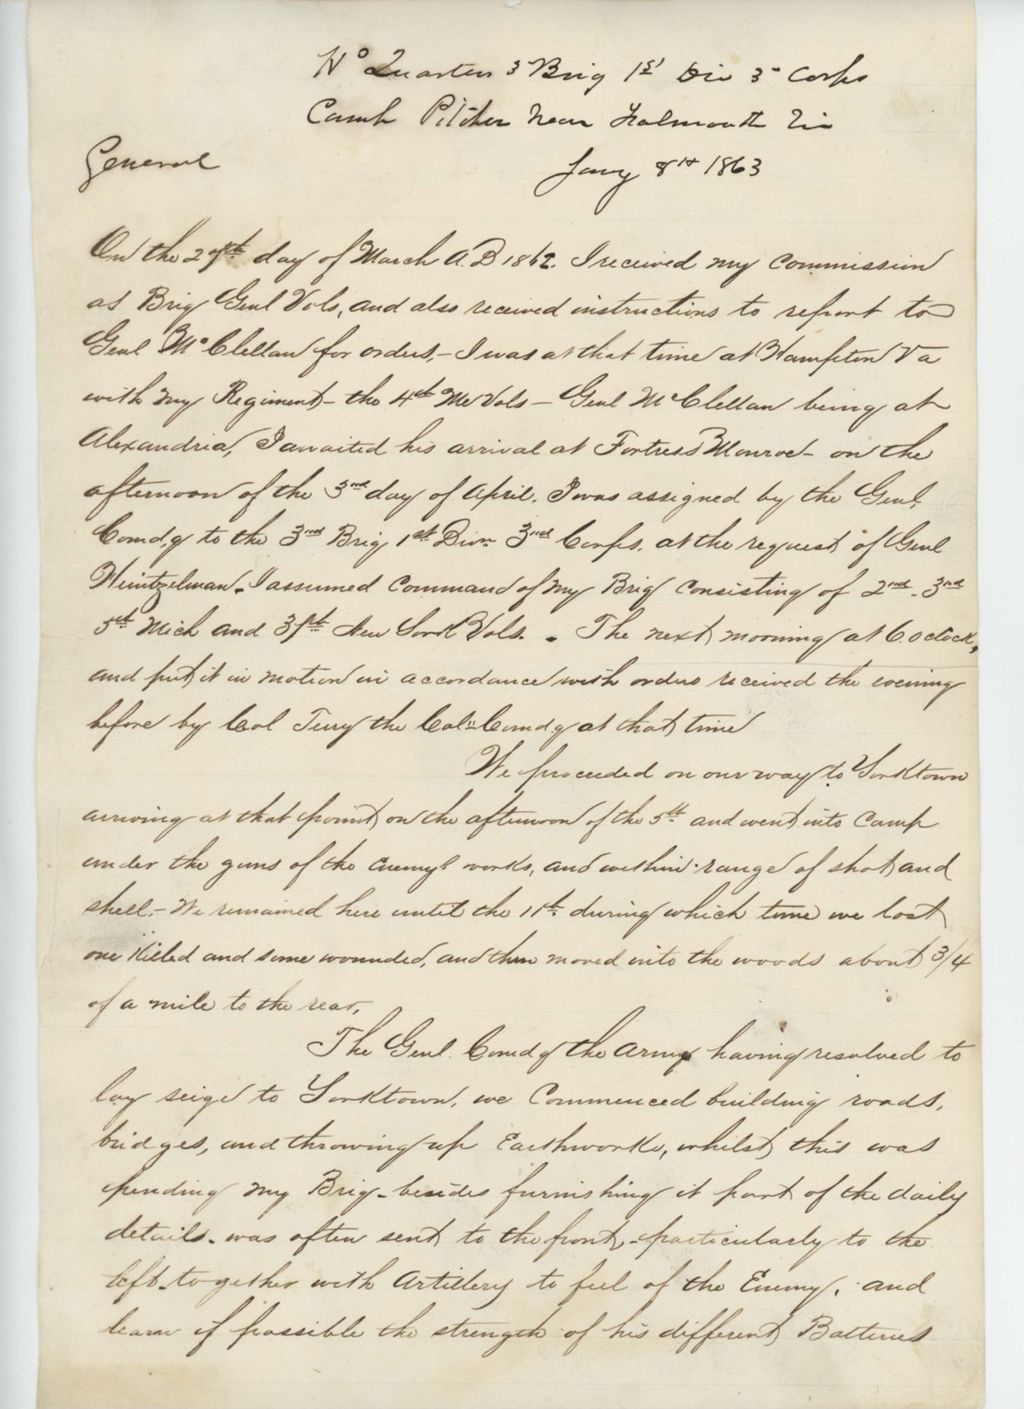 Hd Quarters 3d Brig 1st Div 3d Corps
Camp Pitcher Near Falmouth Va
General Jany 8th 1863
On the 27th day of March A.D 1862. I received my Commission
as Brig Genl Vols, and also received instructions to report to
Genl McClellan for orders,- I was at that time at Hampton Va
with my Regiment- the 4th Me Vols- Genl McClellan being at
Alexandria, I awaited his arrival at Fortress Monroe- on the
afternoon of the 3nd day of April. I was assigned by the Genl,
Comd,g to the 3nd Brig 1st Divn 3nd Corps. at the request of Genl
Heintzelman. I assumed Command of my Brig Consisting of 2nd. 3nd
5th Mich and 37th New York Vols. . The next morning at 6. oclock,
and put it in motion in accordance with orders received the evening
before by Col Terry the Col. Comdg at that time
We proceeded on our way to Yorktown
arriving at that point on the afternoon of the 5th and went into Camp
under the guns of the Enemys works, and within range of shot and
shell,- We remained here until the 11th. during which time we lost
one killed and some wounded, and then moved into the woods about 3/4
of a mile to the rear,
The Genl. Comdg the Army having resolved to
lay seige to Yorktown, we Commenced building roads,
bridges, and throwing up Earthworks, whilst this was
pending my Brig- besides furnishing it part of the daily
details. was often sent to the front,-particularly to the
left-together with Artillery to feel of the Enemy, and
learn if possible the strength of his different Batteries